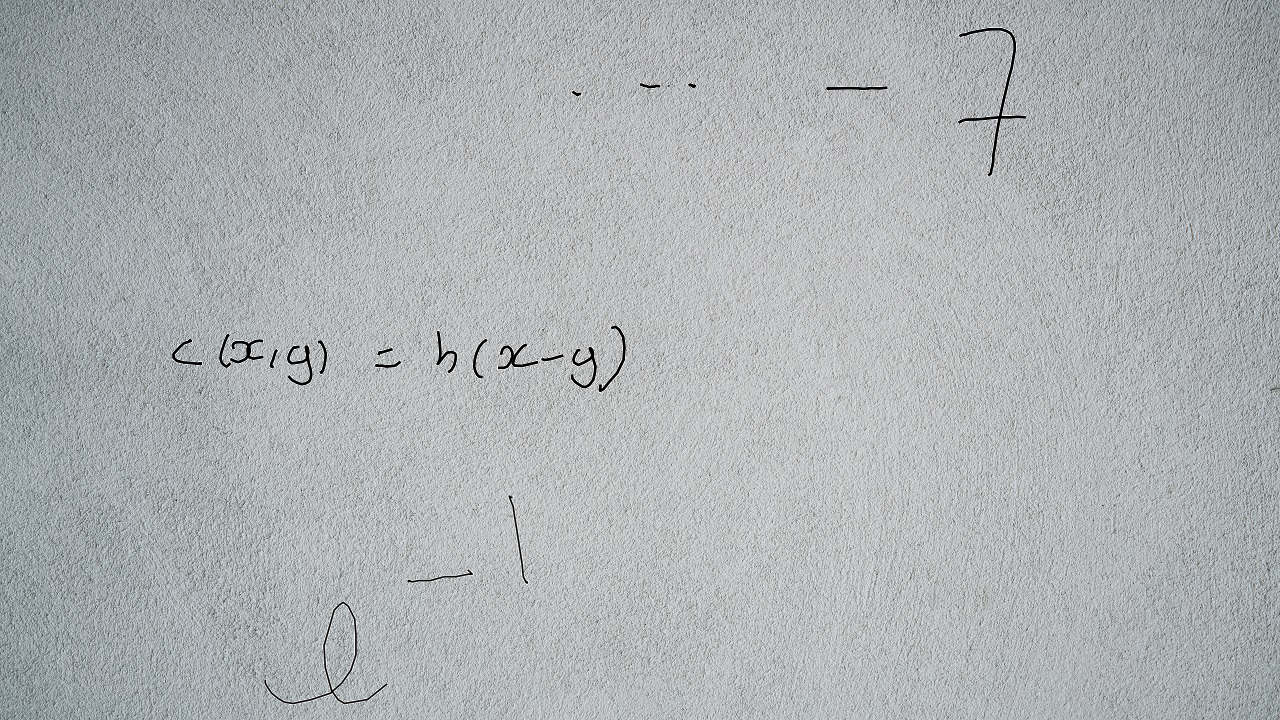 . . . . - 7
c(x,y) = h(x-y)
e^{-1}